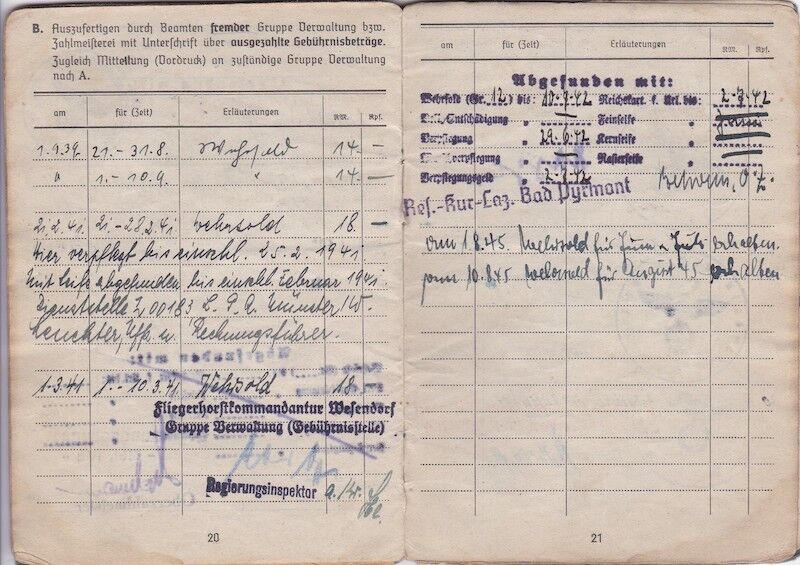 B. Auszufertigen durch Beamten fremder Gruppe Verwaltung bzw.
Zahlmeisterei mit Unterschrift über ausgezahlte Gebührnisbeträge.
Zugleich Mitteilung (Vordruck) an zuständige Gruppe Verwaltung
nach A.
am für (Zeit) Erläuterungen RM. Rpf.
1.9.39. 21.-31.8. Wehrsold 14 -
" 1.-10.9. " 14 -
21.2.41. 21.-28.2.41 Wehrsold 18 -
Hier verpflegt bis einschl. 25.2.1941
Mit Seife abgefunden bis einschl. Februar 1941.
Dienststelle L 00183 L.P.A. Münster/W.
Uffz. u. Rechnungsführer.
1.3.41 1.-10.3.41 Wehrsold 18 -
Fliegerhorstkommandantur Wesendorf
Gruppe Verwaltung (Gebührnisstelle)
Regierungsinspektor
20
am für (Zeit) Erläuterungen RM. Rpf.
Abgefunden mit:
Wehrsold (Gr. 12) bis 10.7.42 Reichskart. f. Url. bis: 2.7.42
Entschädigung " Feinseife "
Verpflegung " 29.6.42 Kernseife "
verpflegung " Rasierseife "
Verpflegungsgeld " 2.7.42
Res.-Kur-Laz. Bad Pyrmont
am 1.8.45. Wehrsold für Juni u. Juli erhalten.
am 10.8.45 Wehrsold für August 45 erhalten
21